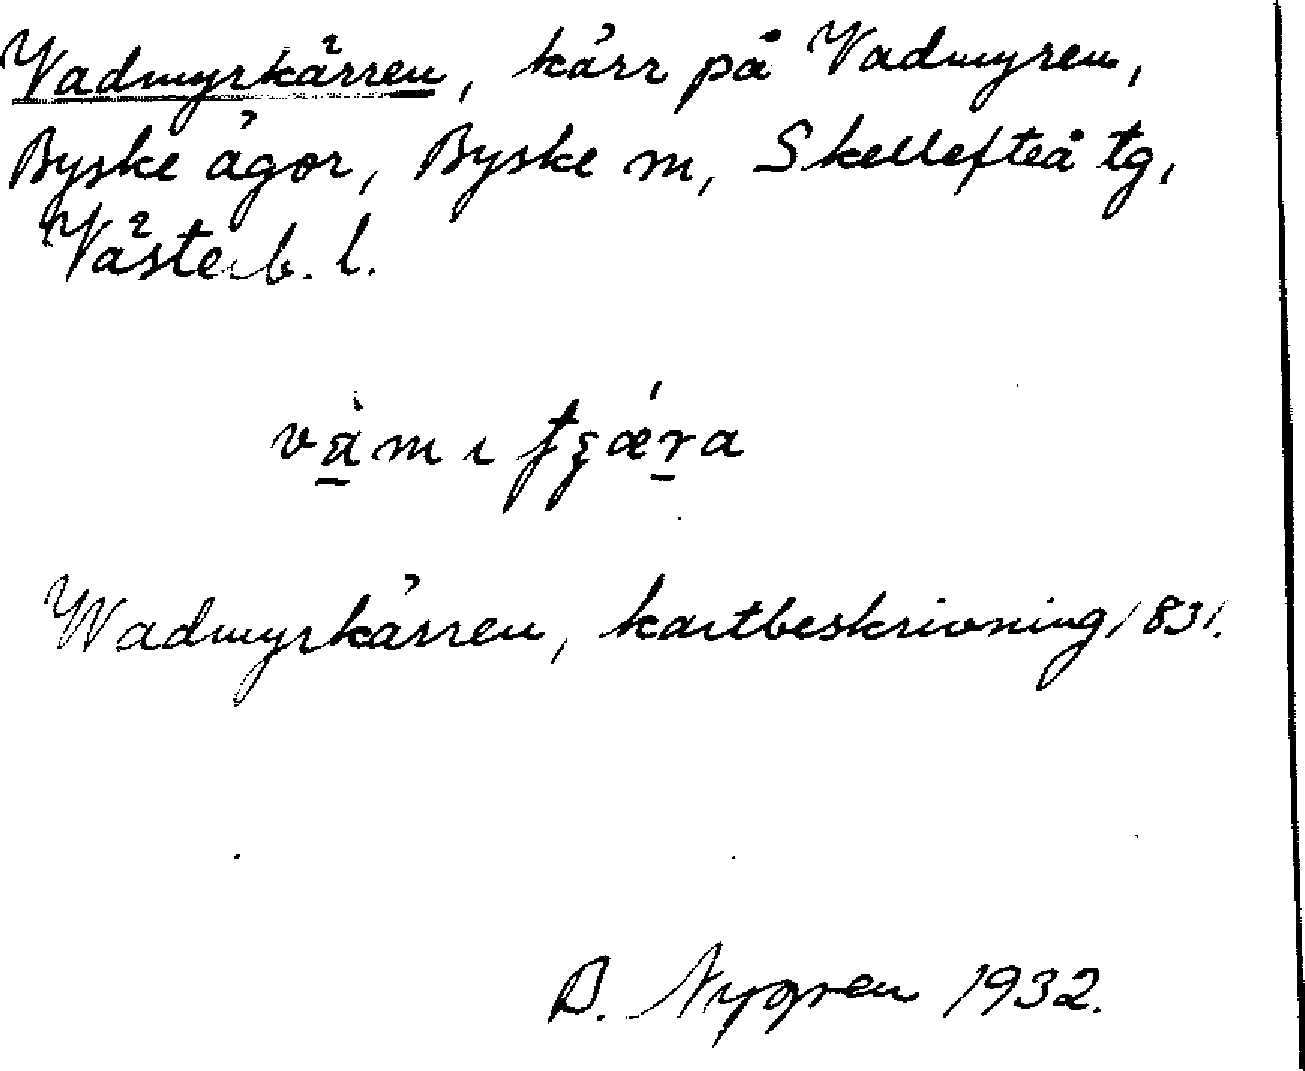 Vadmyrkärren, kärr på Vadmyren,
Byske ägor, Byske sn, Skellefteå tg,
Västerb. l.
Wadmyrkärren, kartbeskrivning 1831.
B. Nygren 1932.